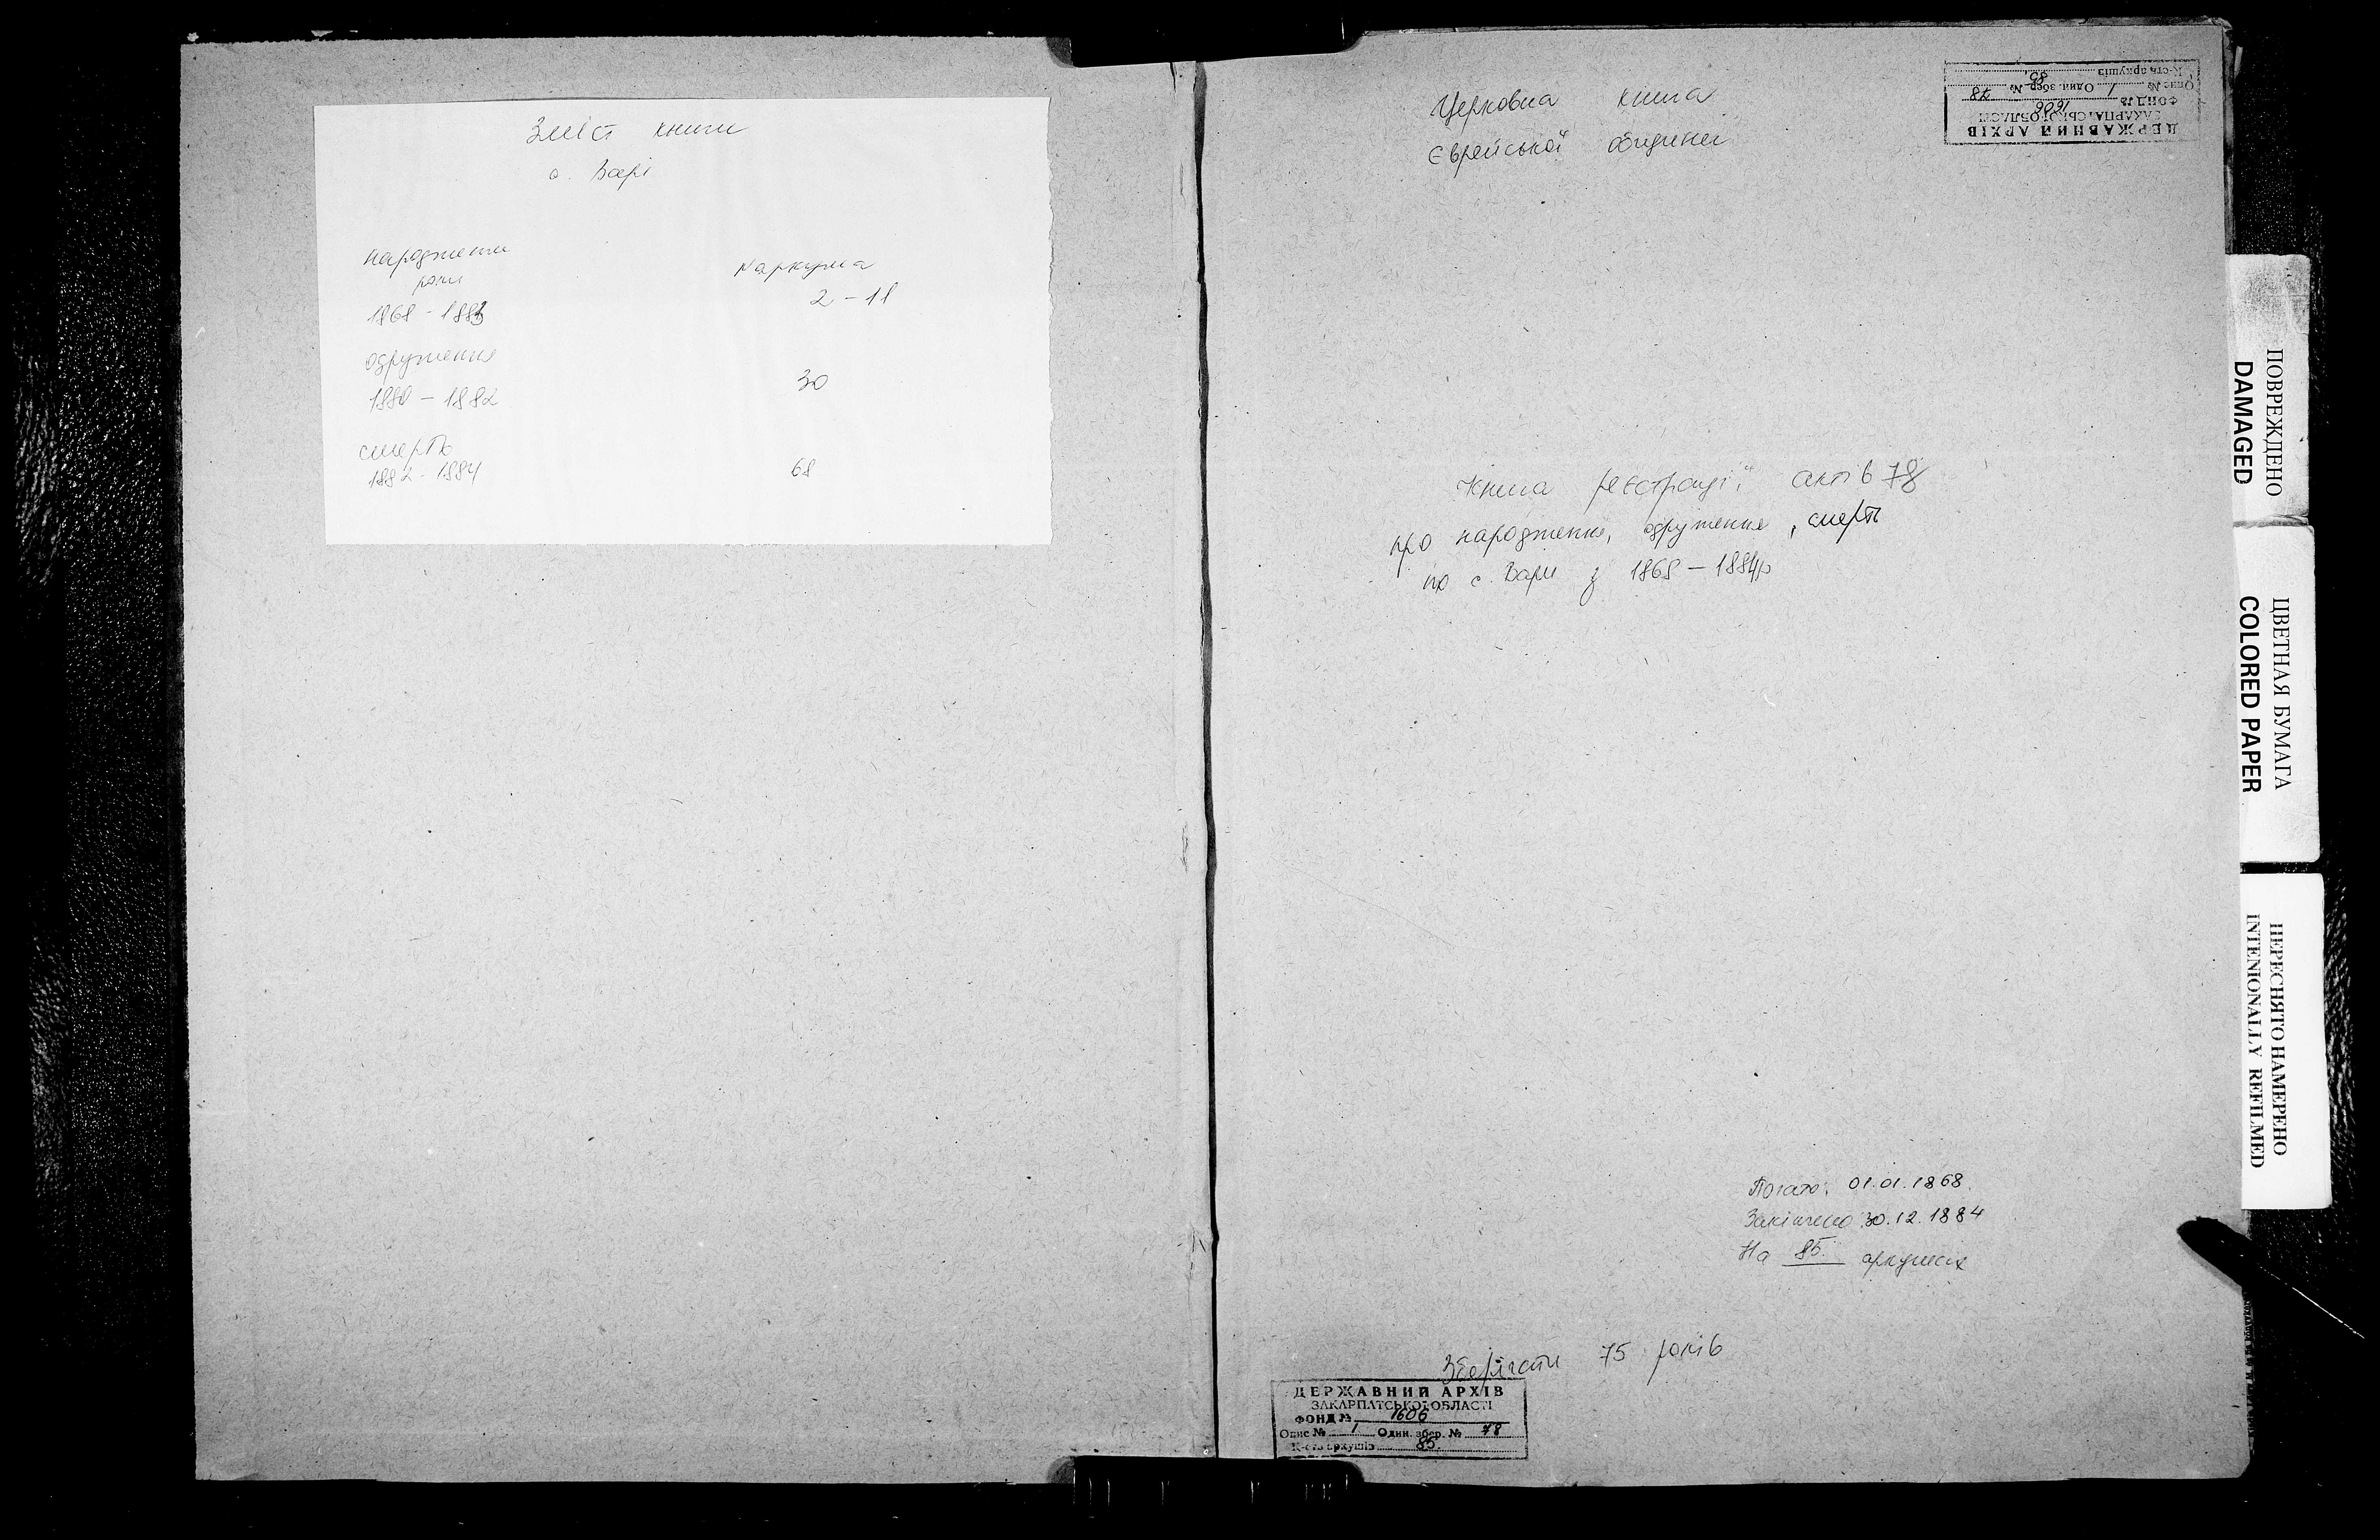 Зміст книги
с. Варі
народження
роки
№ аркуша
1868 - 1883
2 - 11
одруження
1880 - 1882
30
смерть
1882 - 1884
68
Церковна книга
Єврейської общини
Книга реєстрації актів 78
про народження, одруження, смерть
по с. Вари з 1868 - 1884р
Почато: 01.01.1868.
Закінчено 30.12.1884
На 85. аркушах
Зберігати 75 років
ДЕРЖАВНИЙ АРХІВ
ЗАКАРПАТСЬКОЇ ОБЛАСТІ
ФОНД № 1606
Опис № 1 Один. збер. № 78
К-сть аркушів 85.
ДЕРЖАВНИЙ АРХІВ
ЗАКАРПАТСЬКОЇ ОБЛАСТІ
ФОНД № 1606
Опис № 1 Один. збер. № 78
К-сть аркушів 85.
ПОВРЕЖДЕНО
DAMAGED
ЦВЕТНАЯ БУМАГА
COLORED PAPER
ПЕРЕСНЯТО НАМЕРЕНО
INTENIONALLY REFILMED